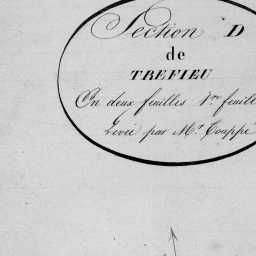 Section D
de
TREFIEU
En deux feuilles 1re feuill
Levée par Mr. Couppé